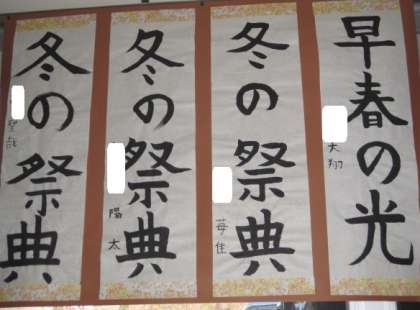 早春の光
大翔
冬の祭典
苺佳
冬の祭典
陽太
冬の祭典
聖哉